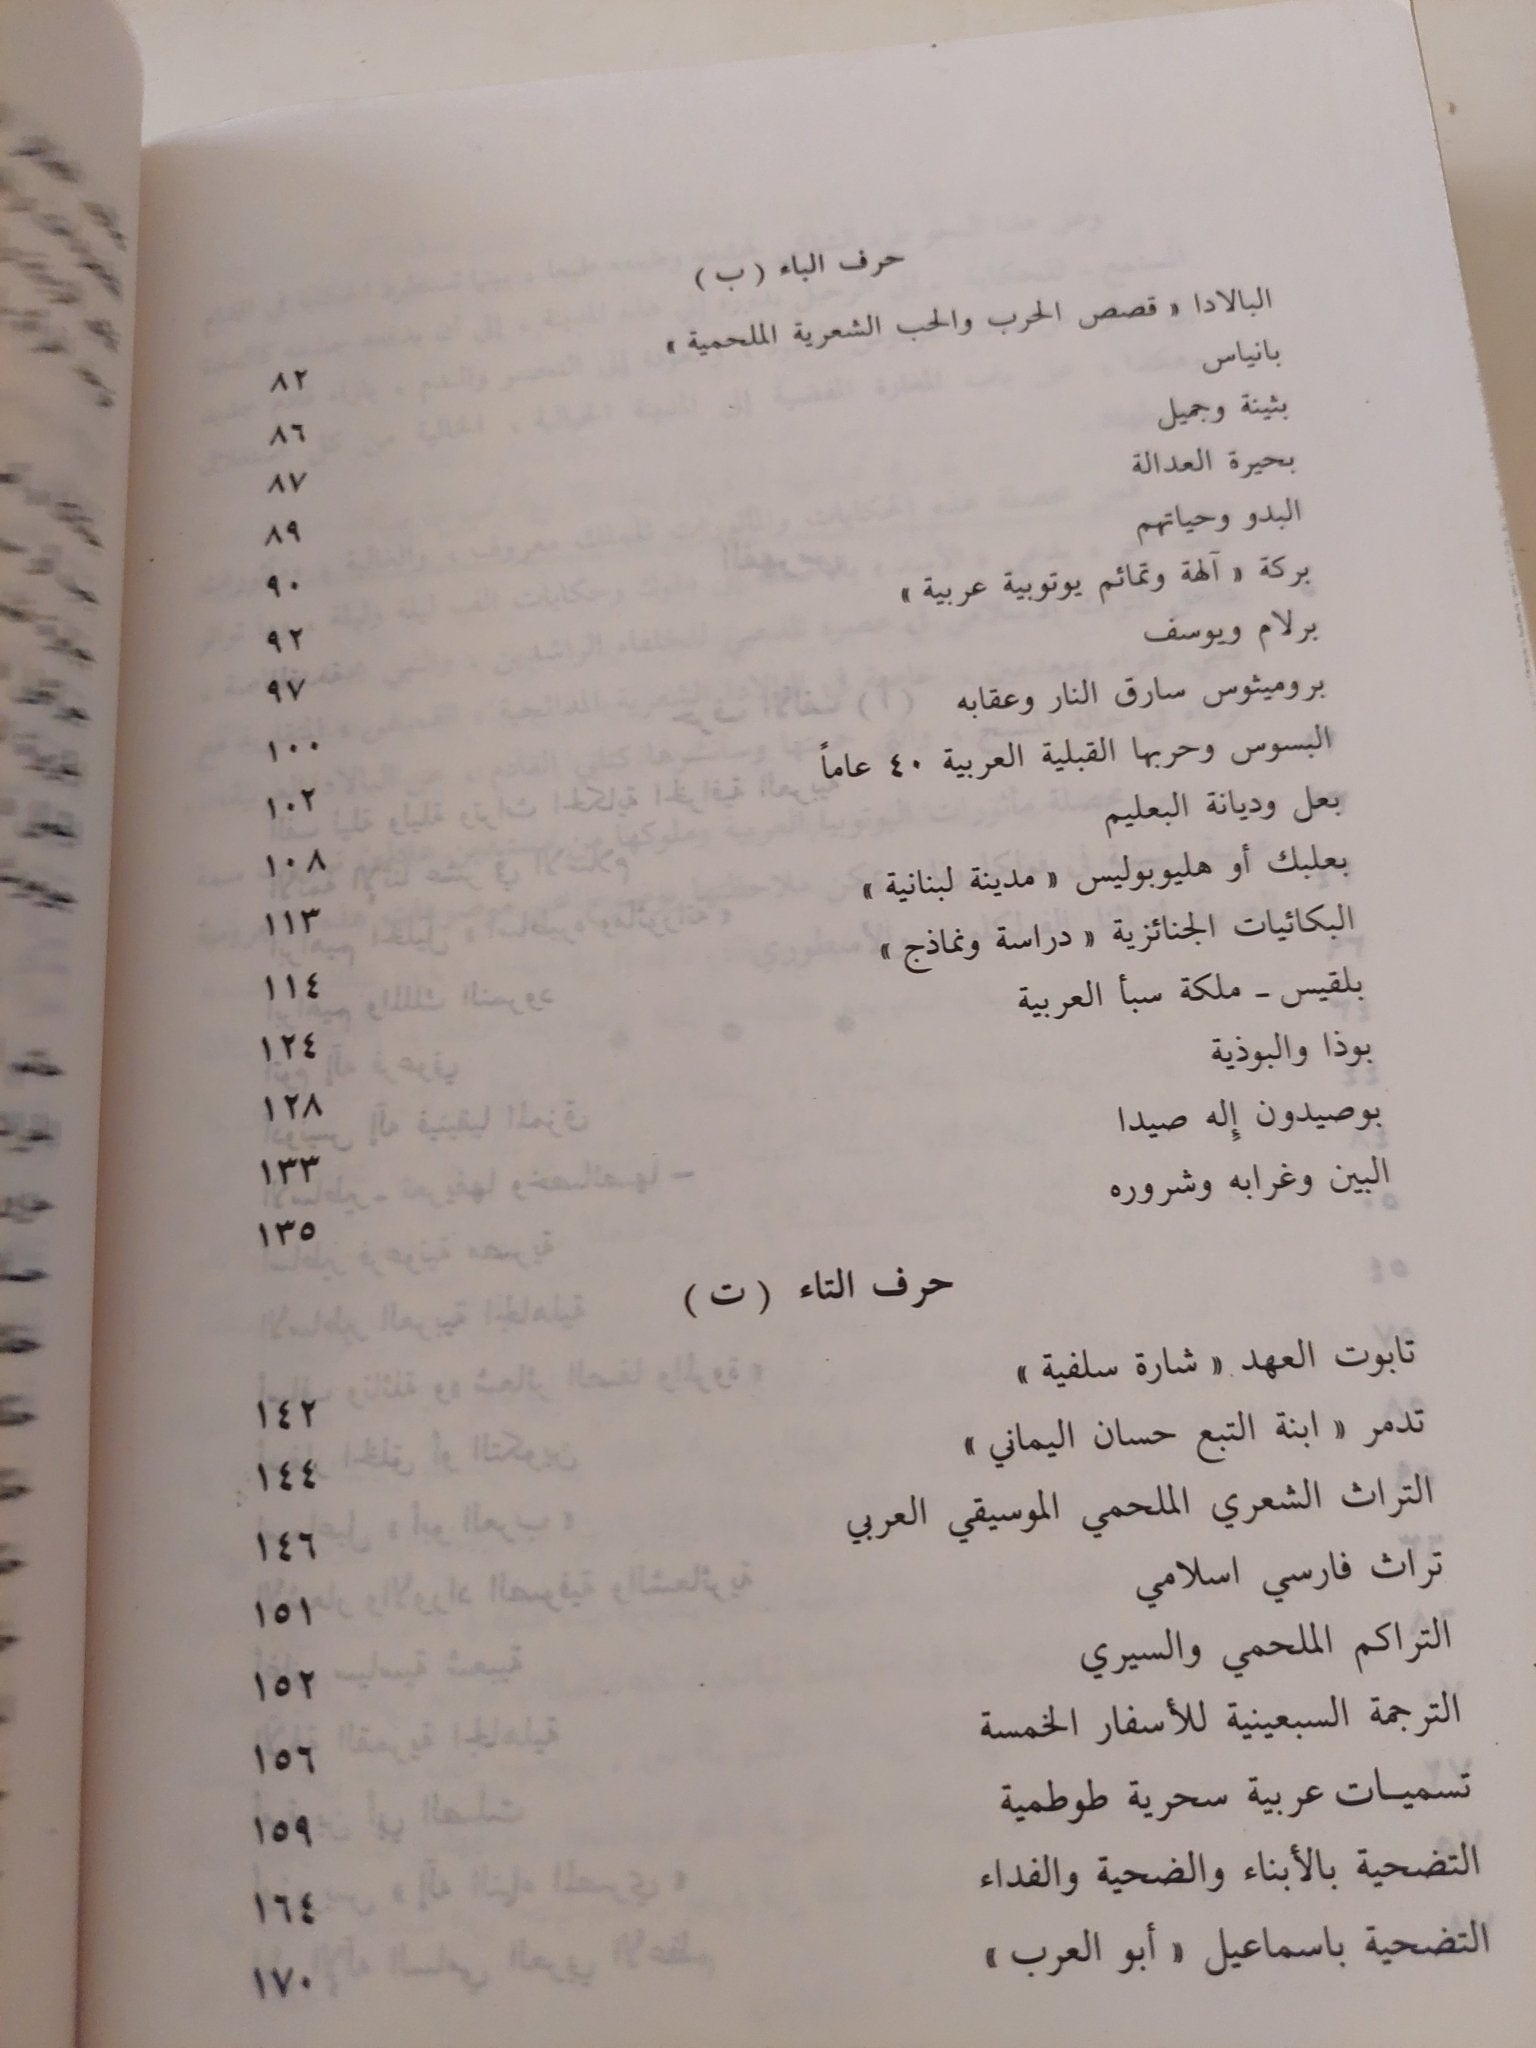 حرف الباء ( ب )
البالادا « قصص الحرب والحب الشعرية الملحمية » ٨٢
بانياس ٨٦
بثينة وجميل ٨٧
بحيرة العدالة ٨٩
البدو وحياتهم ٩٠
بركة « آلهة وتمائم يوتوبية عربية » ٩٢
برلام ويوسف ٩٧
بروميثوس سارق النار وعقابه ١٠٠
البسوس وحربها القبلية العربية ٤٠ عاماً ١٠٢
بعل وديانة البعليم ١٠٨
بعلبك أو هليوبوليس « مدينة لبنانية » ١١٣
البكائيات الجنائزية « دراسة ونماذج » ١١٤
بلقيس ـ ملكة سبأ العربية ١٢٤
بوذا والبوذية ١٢٨
بوصيدون إله صيدا ١٣٣
البين وغرابه وشروره ١٣٥
حرف التاء ( ت )
تابوت العهد « شارة سلفية » ١٤٢
تدمر « ابنة التبع حسان اليماني » ١٤٤
التراث الشعري الملحمي الموسيقي العربي ١٤٦
تراث فارسي اسلامي ١٥١
التراكم الملحمي والسيري ١٥٢
الترجمة السبعينية للأسفار الخمسة ١٥٦
تسميات عربية سحرية طوطمية ١٥٩
التضحية بالأبناء والضحية والفداء ١٦٤
التضحية باسماعيل « أبو العرب » ١٧٠